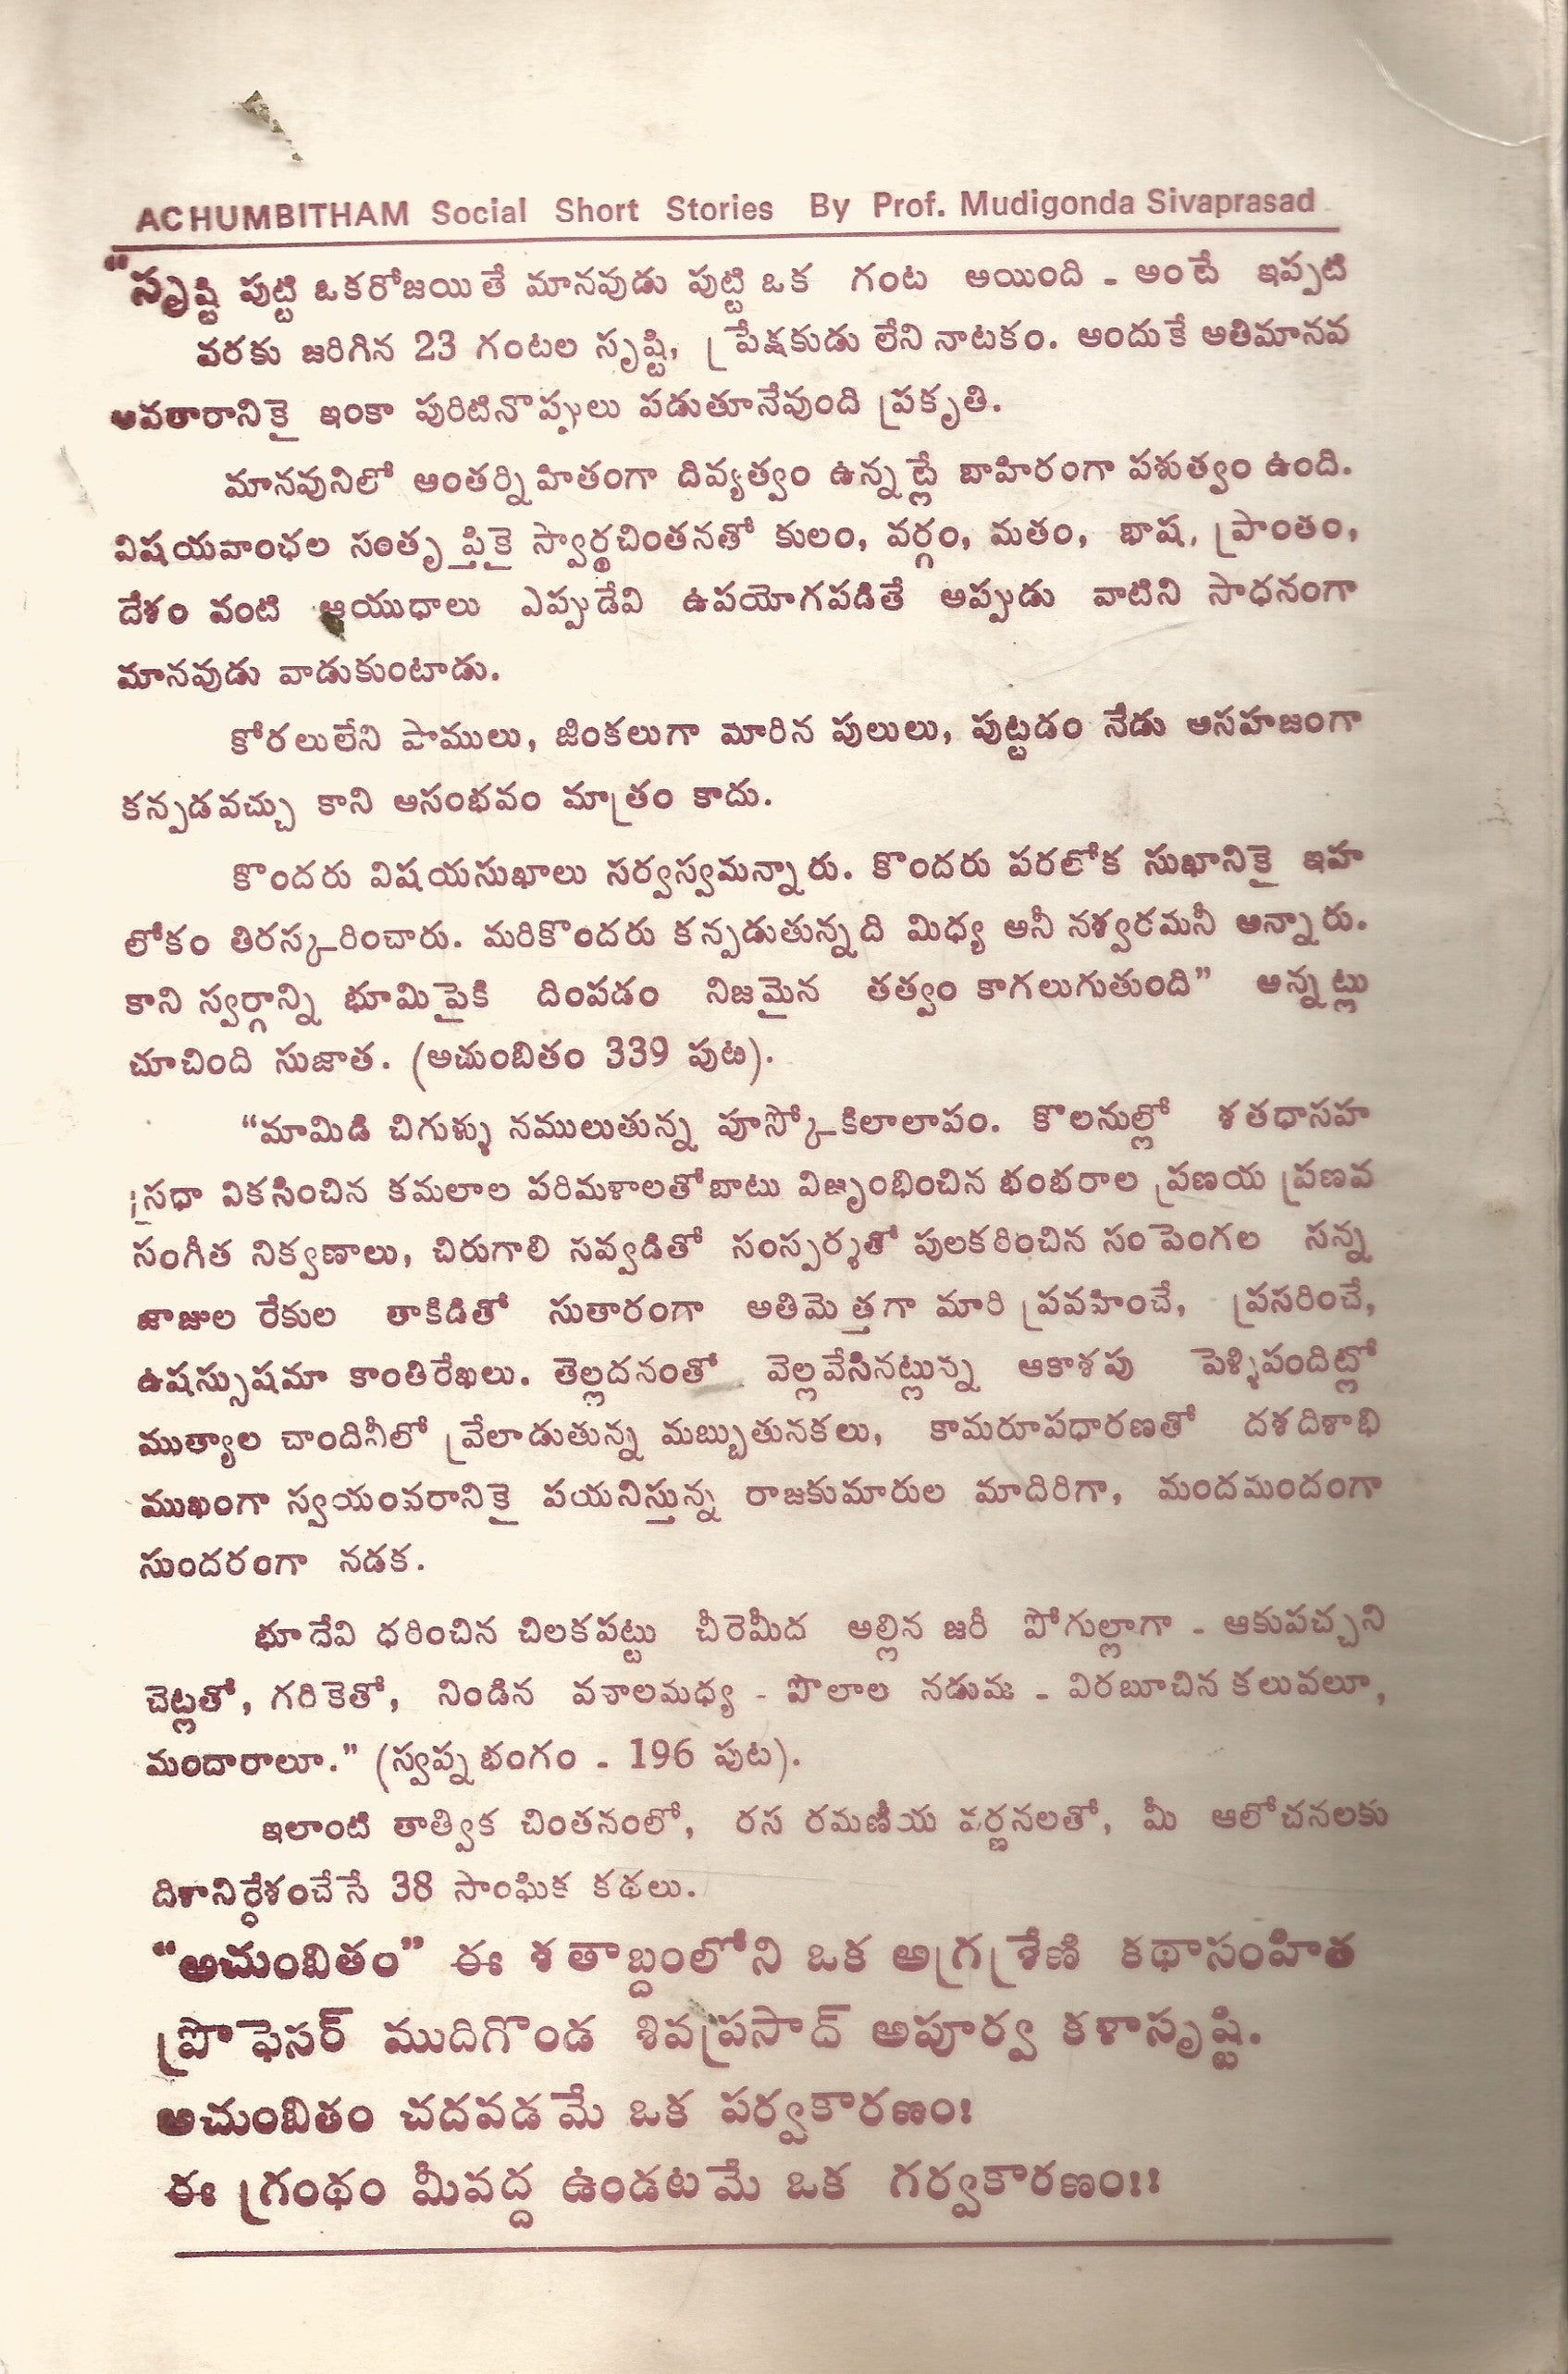 ACHUMBITHAM Social Short Stories By Prof. Mudigonda Sivaprasad
"సృష్టి పుట్టి ఒకరోజయితే మానవుడు పుట్టి ఒక గంట అయింది - అంటే ఇప్పటి
వరకు జరిగిన 23 గంటల సృష్టి, ప్రేక్షకుడు లేని నాటకం. అందుకే అతిమానవ
అవతారానికై ఇంకా పురిటినొప్పులు పడుతూనేవుంది ప్రకృతి.
మానవునిలో అంతర్నిహితంగా దివ్యత్వం ఉన్నట్లే బాహిరంగా పశుత్వం ఉంది.
విషయవాంఛల సంతృప్తికై స్వార్థచింతనతో కులం, వర్గం, మతం, భాష, ప్రాంతం,
దేశం వంటి ఆయుధాలు ఎప్పుడేవి ఉపయోగపడితే అప్పుడు వాటిని సాధనంగా
మానవుడు వాడుకుంటాడు.
కోరలులేని పాములు, జింకలుగా మారిన పులులు, పుట్టడం నేడు అసహజంగా
కన్పడవచ్చు కాని అసంభవం మాత్రం కాదు.
కొందరు విషయసుఖాలు సర్వస్వమన్నారు. కొందరు పరలోక సుఖానికై ఇహ
లోకం తిరస్కరించారు. మరికొందరు కన్పడుతున్నది మిధ్య అనీ నశ్వరమనీ అన్నారు.
కాని స్వర్గాన్ని భూమిపైకి దింపడం నిజమైన తత్వం కాగలుగుతుంది" అన్నట్లు
చూచింది సుజాత. (అచుంబితం 339 పుట).
"మామిడి చిగుళ్ళు నములుతున్న పూస్కోకిలాలాపం. కొలనుల్లో శతధాసహ
స్రైధా వికసించిన కమలాల పరిమళాలతోబాటు విజృంభించిన భంభరాల ప్రణయ ప్రణవ
సంగీత నిక్వణాలు, చిరుగాలి సవ్వడితో సంస్పర్శతో పులకరించిన సంపెంగల సన్న
జాజుల రేకుల తాకిడితో సుతారంగా అతిమెత్తగా మారి ప్రవహించే, ప్రసరించే,
ఉషస్సుషమా కాంతిరేఖలు. తెల్లదనంతో వెల్లవేసినట్లున్న ఆకాశపు పెళ్ళిపందిట్లో
ముత్యాల చాందినీలో వ్రేలాడుతున్న మబ్బుతునకలు, కామరూపధారణతో దశదిశాభి
ముఖంగా స్వయంవరానికై పయనిస్తున్న రాజకుమారుల మాదిరిగా, మందమందంగా
సుందరంగా నడక.
భూదేవి ధరించిన చిలకపట్టు చీరెమీద అల్లిన జరీ పోగుల్లాగా - ఆకుపచ్చని
చెట్లతో, గరికెతో, నిండిన వనాలమధ్య - పొలాల నడుమ - విరబూచిన కలువలూ,
మందారాలూ." (స్వప్నభంగం - 196 పుట).
ఇలాంటి తాత్విక చింతనంలో, రస రమణీయ వర్ణనలతో, మీ ఆలోచనలకు
దిశానిర్ధేశంచేసే 38 సాంఘిక కథలు.
"అచుంబితం" ఈ శతాబ్దంలోని ఒక అగ్రశ్రేణి కథాసంహిత
ప్రొఫెసర్ ముదిగొండ శివప్రసాద్ అపూర్వ కళాసృష్టి.
అచుంబితం చదవడమే ఒక పర్వకారణం!
ఈ గ్రంథం మీవద్ద ఉండటమే ఒక గర్వకారణం!!